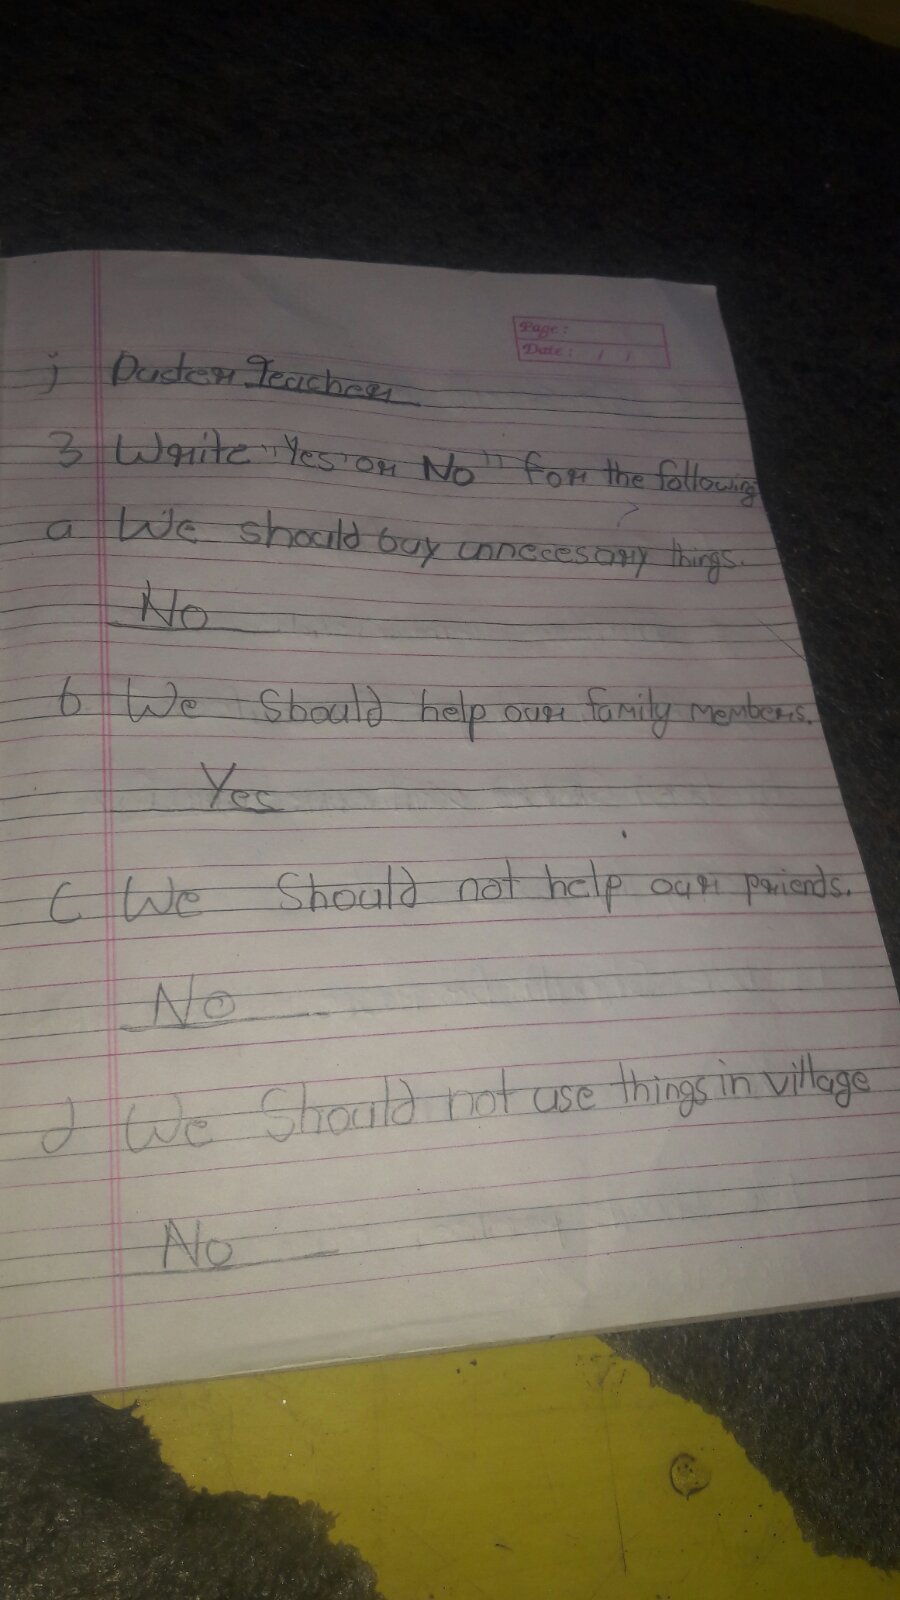 Page:
Date: / /
j Docter Teacher
3 Write "Yes or No" for the following
?
a We should buy unnecesary things.
No
b We should help our family members.
Yes
c We should not help our priends.
No
d We should not use things in village
No